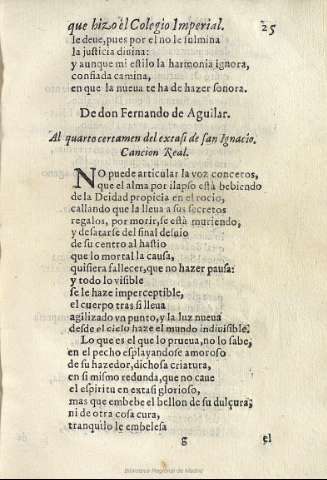 que hizo el Colegio Imperial. 25
le deue, pues por el no le fulmina
la justicia diuina:
y aunque mi estilo la harmonia ignora,
confiada camina,
en que la nueua te ha de hazer sonora.
De don Fernando de Aguilar.
Al quarto certamen del extasi de san Ignacio.
Cancion Real.
NO puede articular la voz concetos,
que el alma por ilapso està bebiendo
de la Deidad propicia en el rocio,
callando que la lleua a sus secretos
regalos, por morir, se està muriendo,
y desatarse del final desuio
de su centro al hastio
que lo mortal la causa,
quisiera fallecer, que no hazer pausa:
y todo lo visible
se le haze imperceptible,
el cuerpo tras si lleua
agilizado vn punto, y la luz nueua
desde el cielo haze el mundo indiuisible.
Lo que es el que lo prueua, no lo sabe,
en el pecho esplayandose amoroso
de su hazedor, dichosa criatura,
en si mismo redunda, que no caue
el espiritu en extasi glorioso,
mas que embebe el bellon de su dulçura;
ni de otra cosa cura,
tranquilo le embelesa
g el
Biblioteca Regional de Madrid